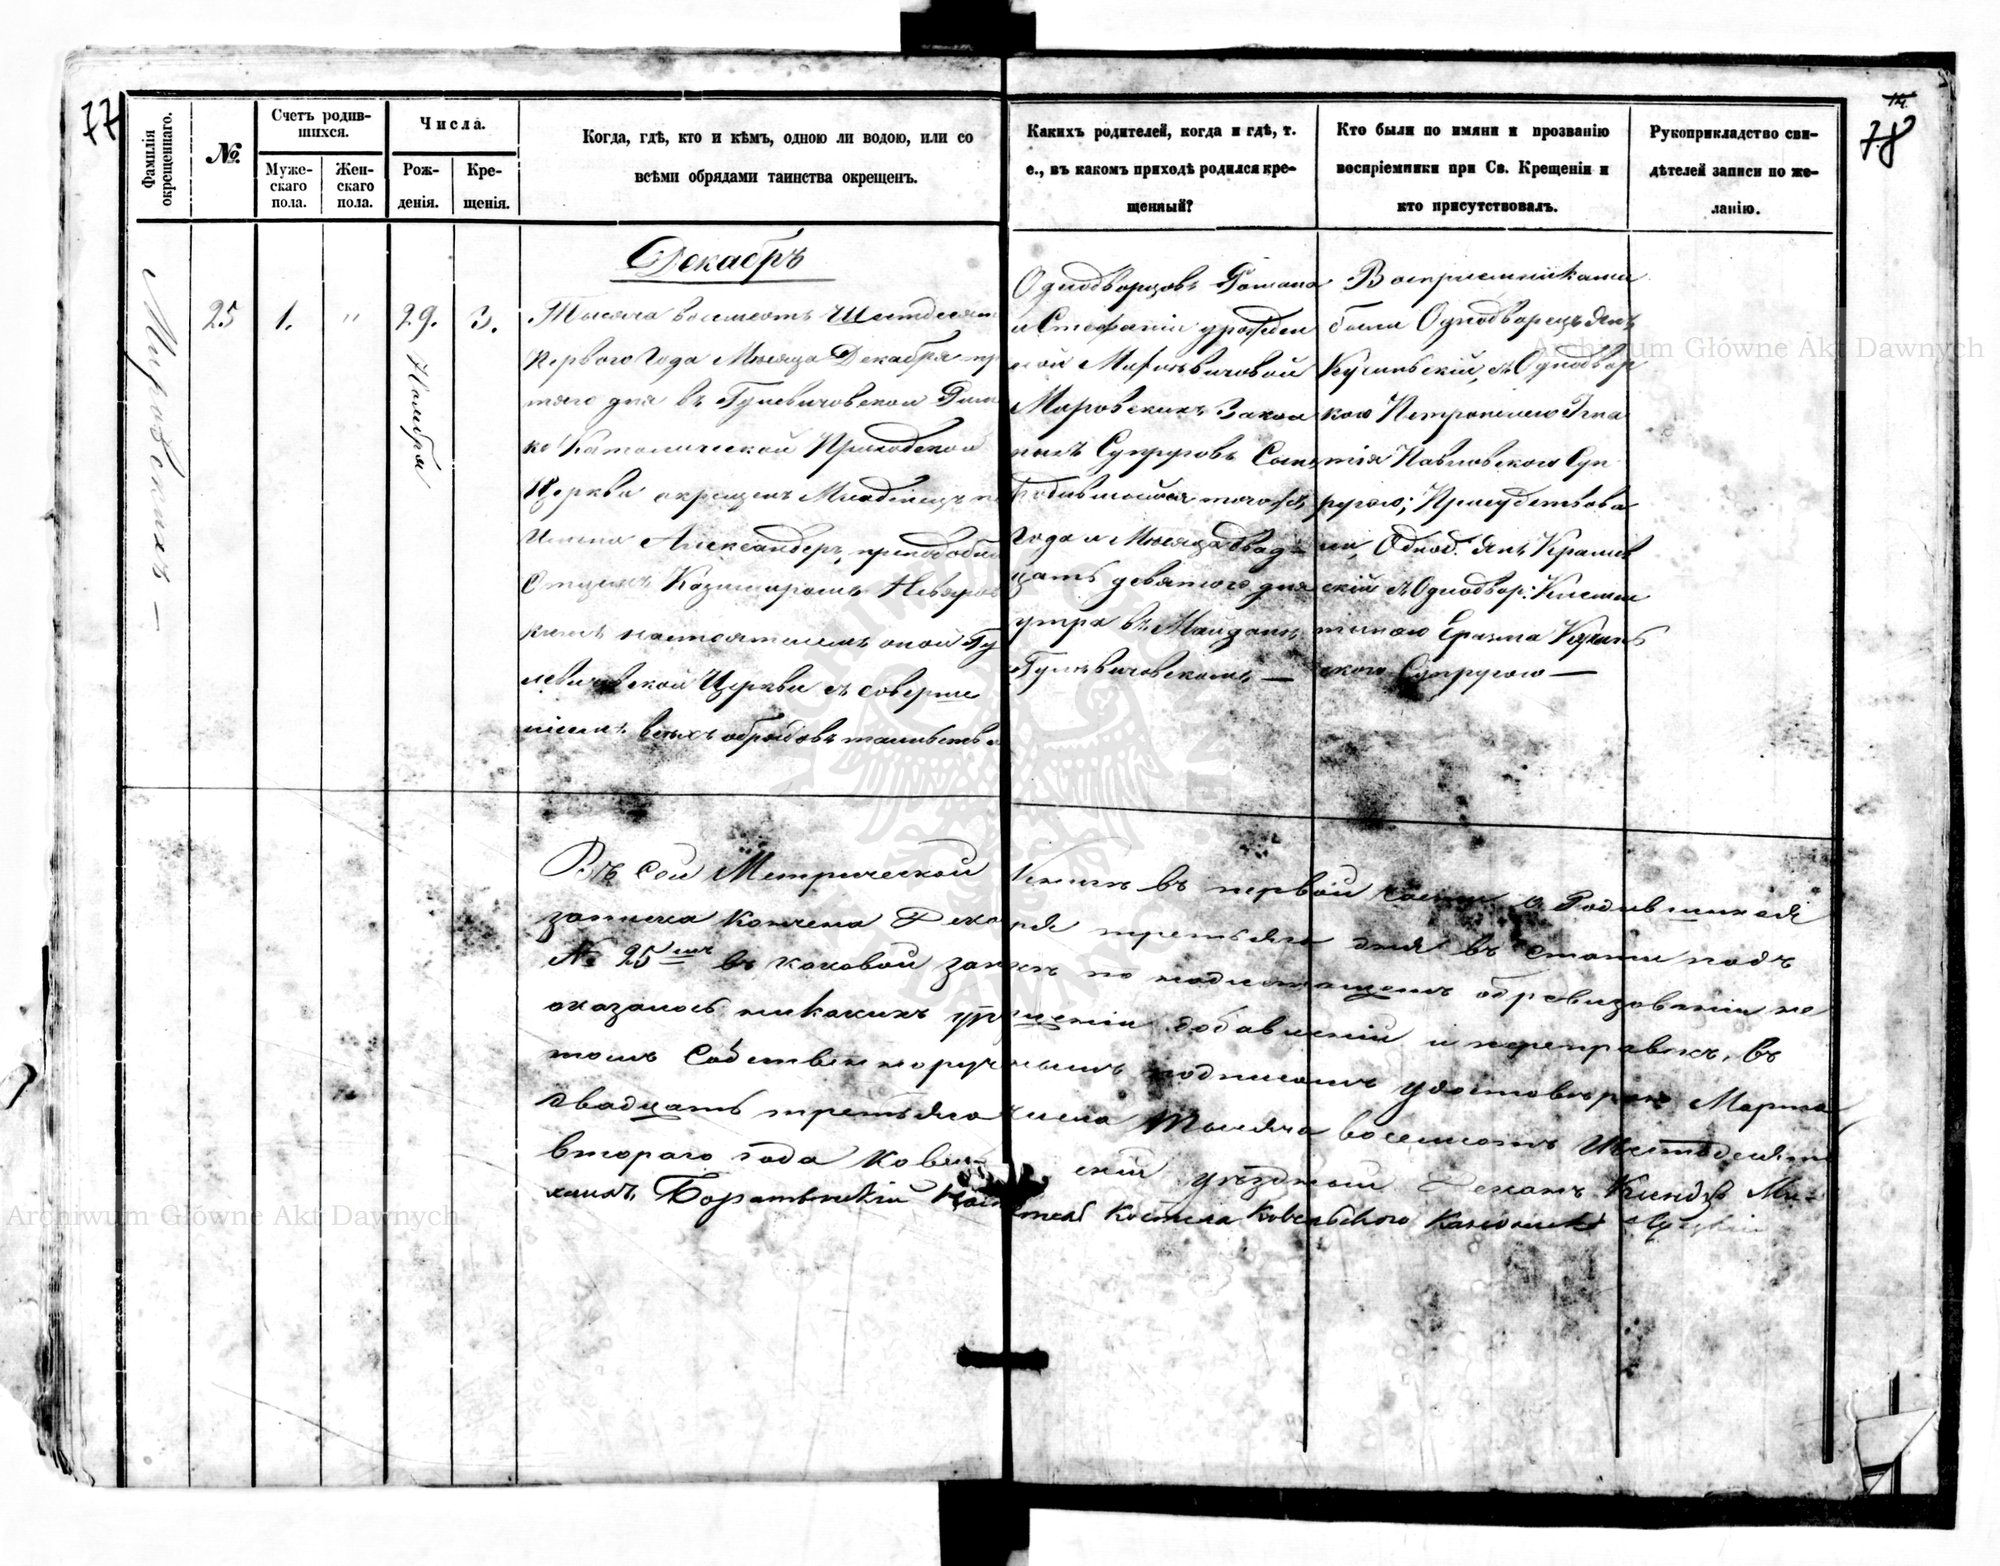 77
78
Фамилія окрещеннаго.
№.
Счетъ родившихся.
Мужескаго пола.
Женскаго пола.
Числа.
Рожденія.
Крещенія.
Когда, гдѣ, кто и кѣмъ, одною ли водою, или со
всѣми обрядами таинства окрещенъ.
Какихъ родителей, когда и гдѣ, т.
е., въ какомъ приходѣ родился кре-
щенный?
Кто были по имяни и прозванію
воспріемники при Св. Крещеніи и
кто присутствовалъ.
Рукоприкладство сви-
дѣтелей записи по же-
ланію.
Мировскихъ
25
1.
"
29.
Ноября
3.
Декабрь
Тысяча восемсотъ Шестдесят
Первого Года Мѣсяца Декабря тре
тяго дня въ Гулевичовской Рим
ко Католической Приходской
Церкви окрещенъ Младенецъ по
Имени Александеръ, преподобным
Отцемъ Казимиромъ
кимъ настоятелемъ оной Гу
левичовской Церкви съ соверше
ніемъ всѣхъ обрядовъ таинства
Однодворцовъ Романа
и Стефаніи урожден
ной
Мировскихъ Закон
ныхъ Супруговъ Сынъ
Родившійся того жъ
Года и Мѣсяца двад
цать девятого дня
утра въ Майданѣ
Гулевичовскомъ —
Восприемниками
были Однодворецъ Янъ
съ Однодвор
кою Петронелею Игна
тія Павловского Суп
ругою; Присудствова
ли, Однод. Янъ
скій съ Однодвор: Клемен
тиною Еразма
ского Супругою —
Въ сей Метрической Книгѣ въ первой части о Родившихся
записка кончена Декабря третьяго дня въ статьи подъ
№ 25мъ въ каковой запискѣ по надлежащемъ обревизованіи не
оказалось никакихъ добавленій и переправокъ, въ
томъ Собственноручнымъ подписомъ удостовѣряю Марта
двадцать третьяго числа Тысяча восемсотъ Шестдесять
второго года Ковельскій уѣздный Деканъ Ксендзъ Ми-
Костела Ковельского Каноникъ Луцкій
Archiwum Główne Akt Dawnych
Archiwum Główne Akt Dawnych